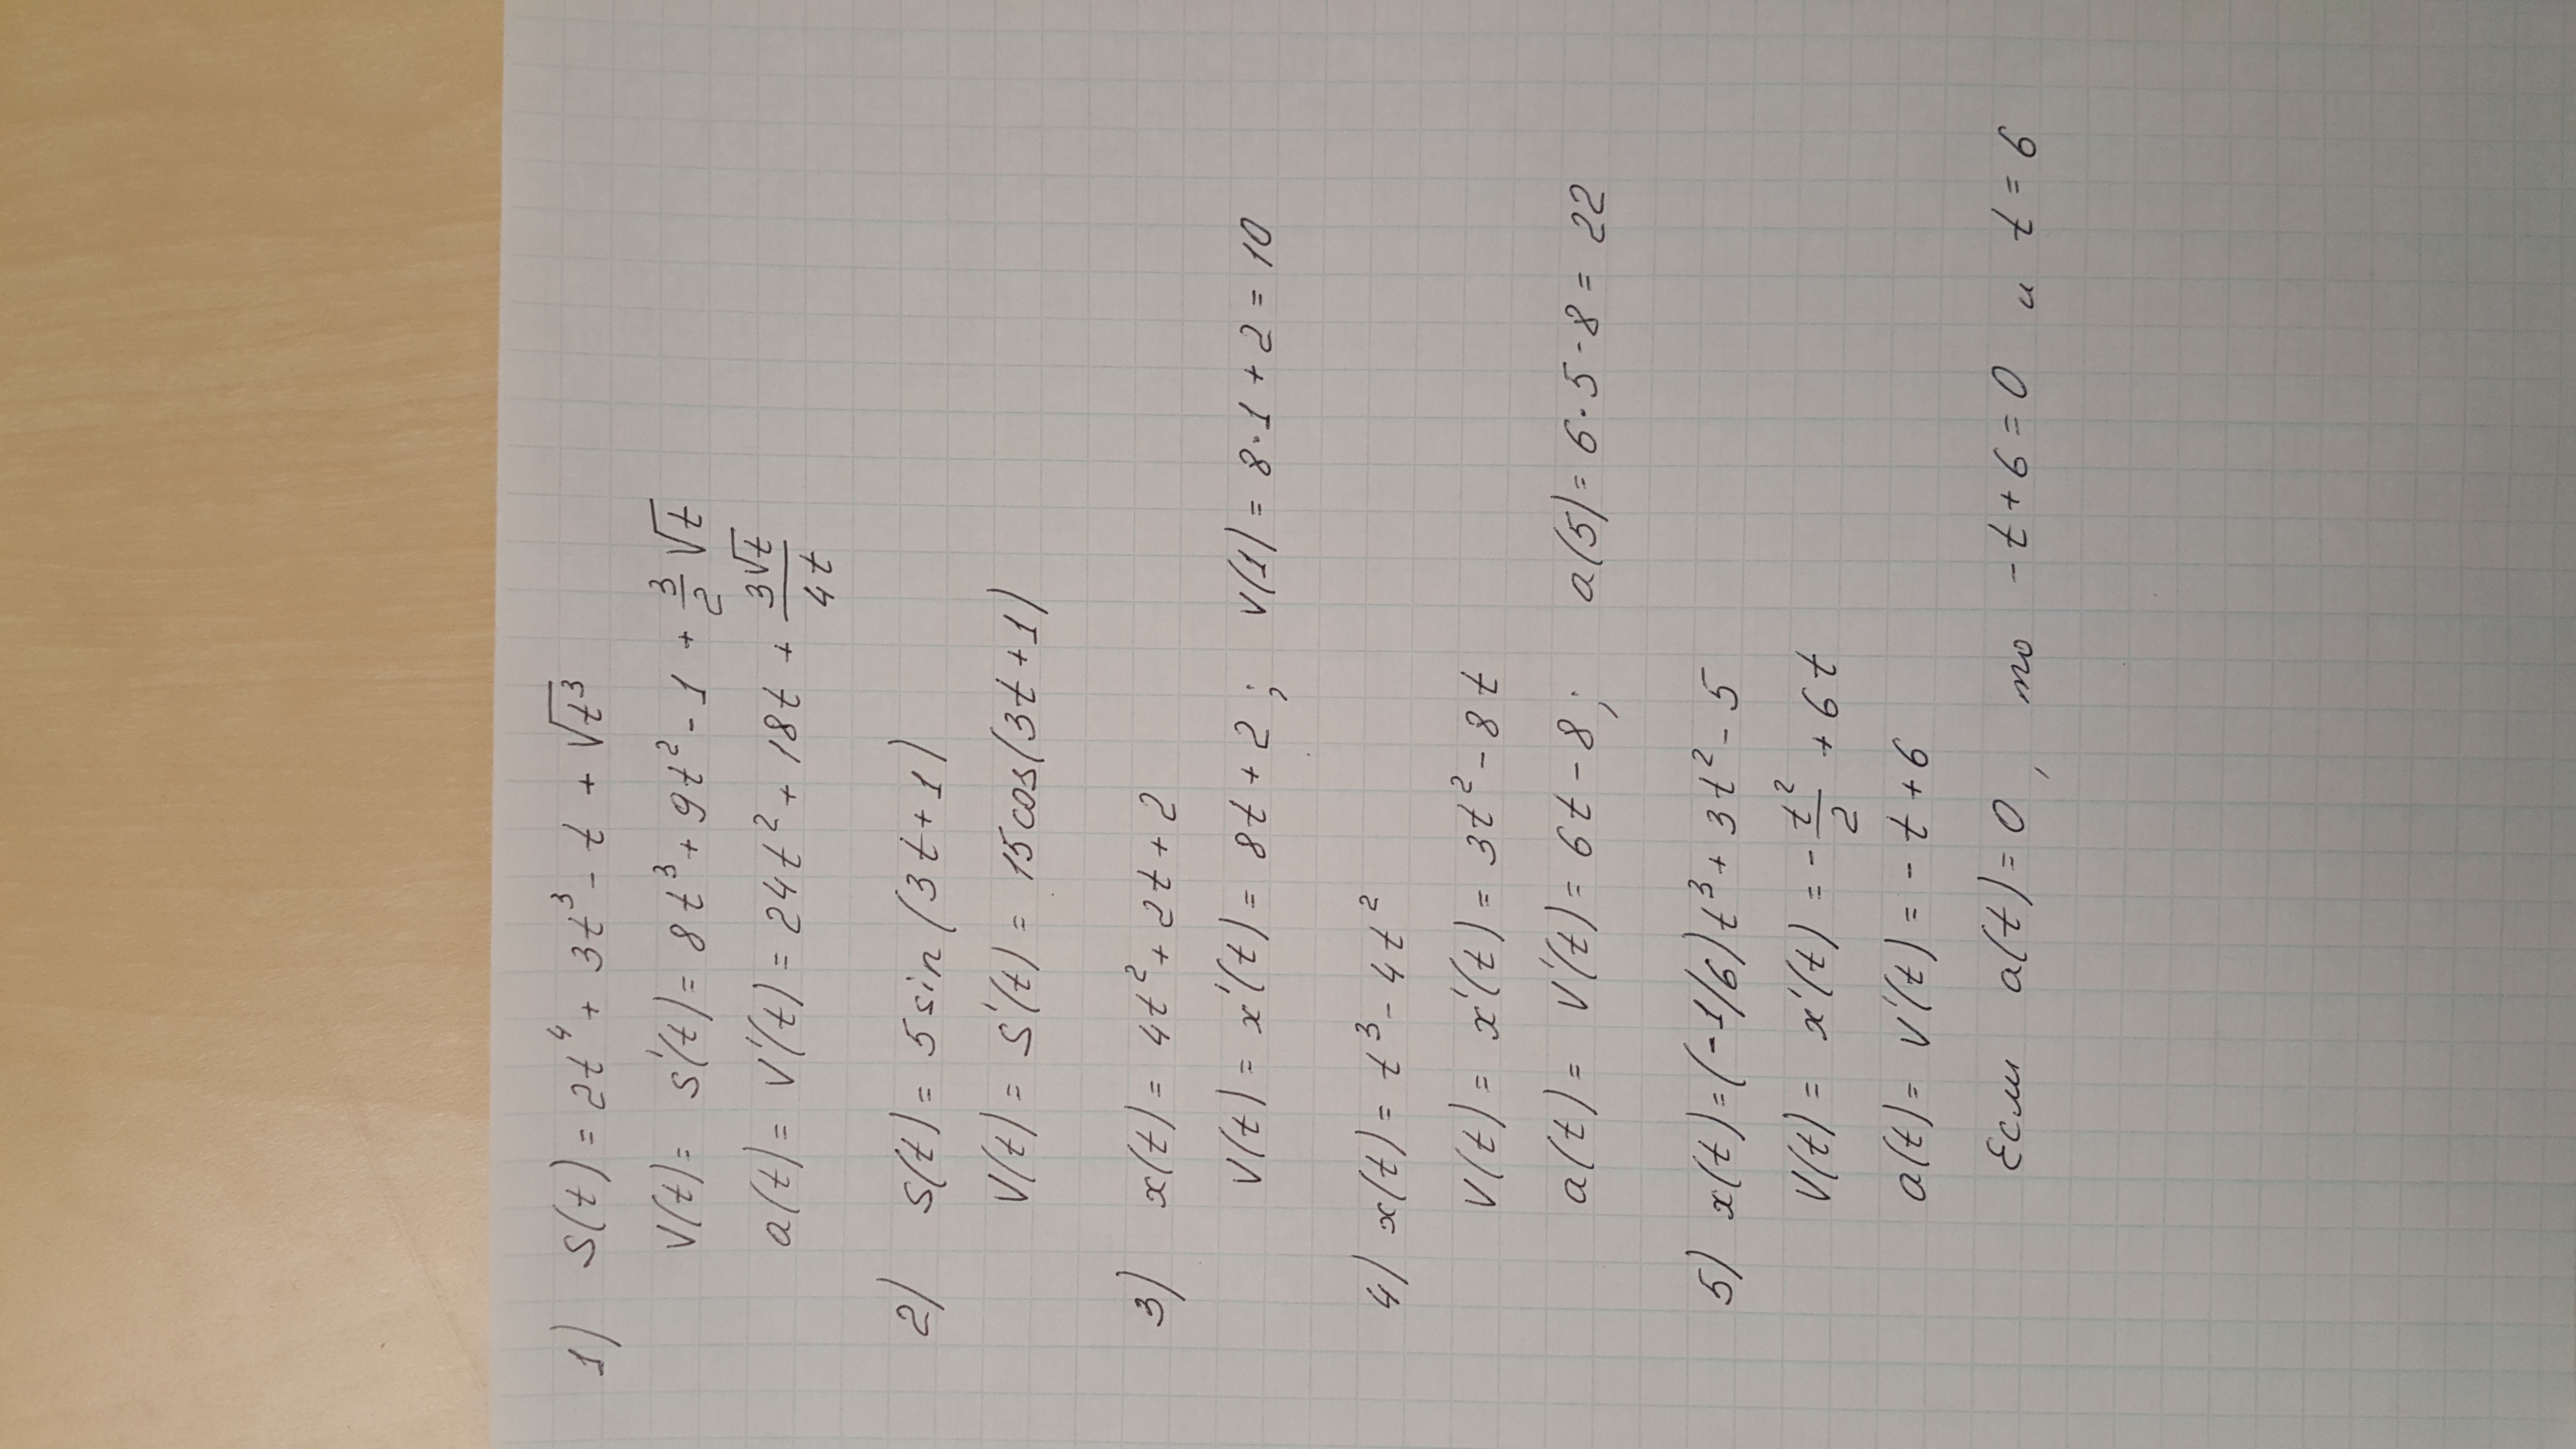 1) S(t) = 2t⁴ + 3t³ - t + √t³
V(t) = S'(t) = 8t³ + 9t² - 1 + 3/2 √t
a(t) = V'(t) = 24t² + 18t + 3√t/4t
2) S(t) = 5 sin (3t + 1)
V(t) = S'(t) = 15 cos(3t + 1)
3) x(t) = 4t² + 2t + 2
V(t) = x'(t) = 8t + 2 ; V(1) = 8·1 + 2 = 10
4) x(t) = t³ - 4t²
V(t) = x'(t) = 3t² - 8t
a(t) = V'(t) = 6t - 8 ; a(5) = 6·5 - 8 = 22
5) x(t) = (-1/6)t³ + 3t² - 5
V(t) = x'(t) = - t²/2 + 6t
a(t) = V'(t) = - t + 6
Если a(t) = 0 , то - t + 6 = 0 и t = 6